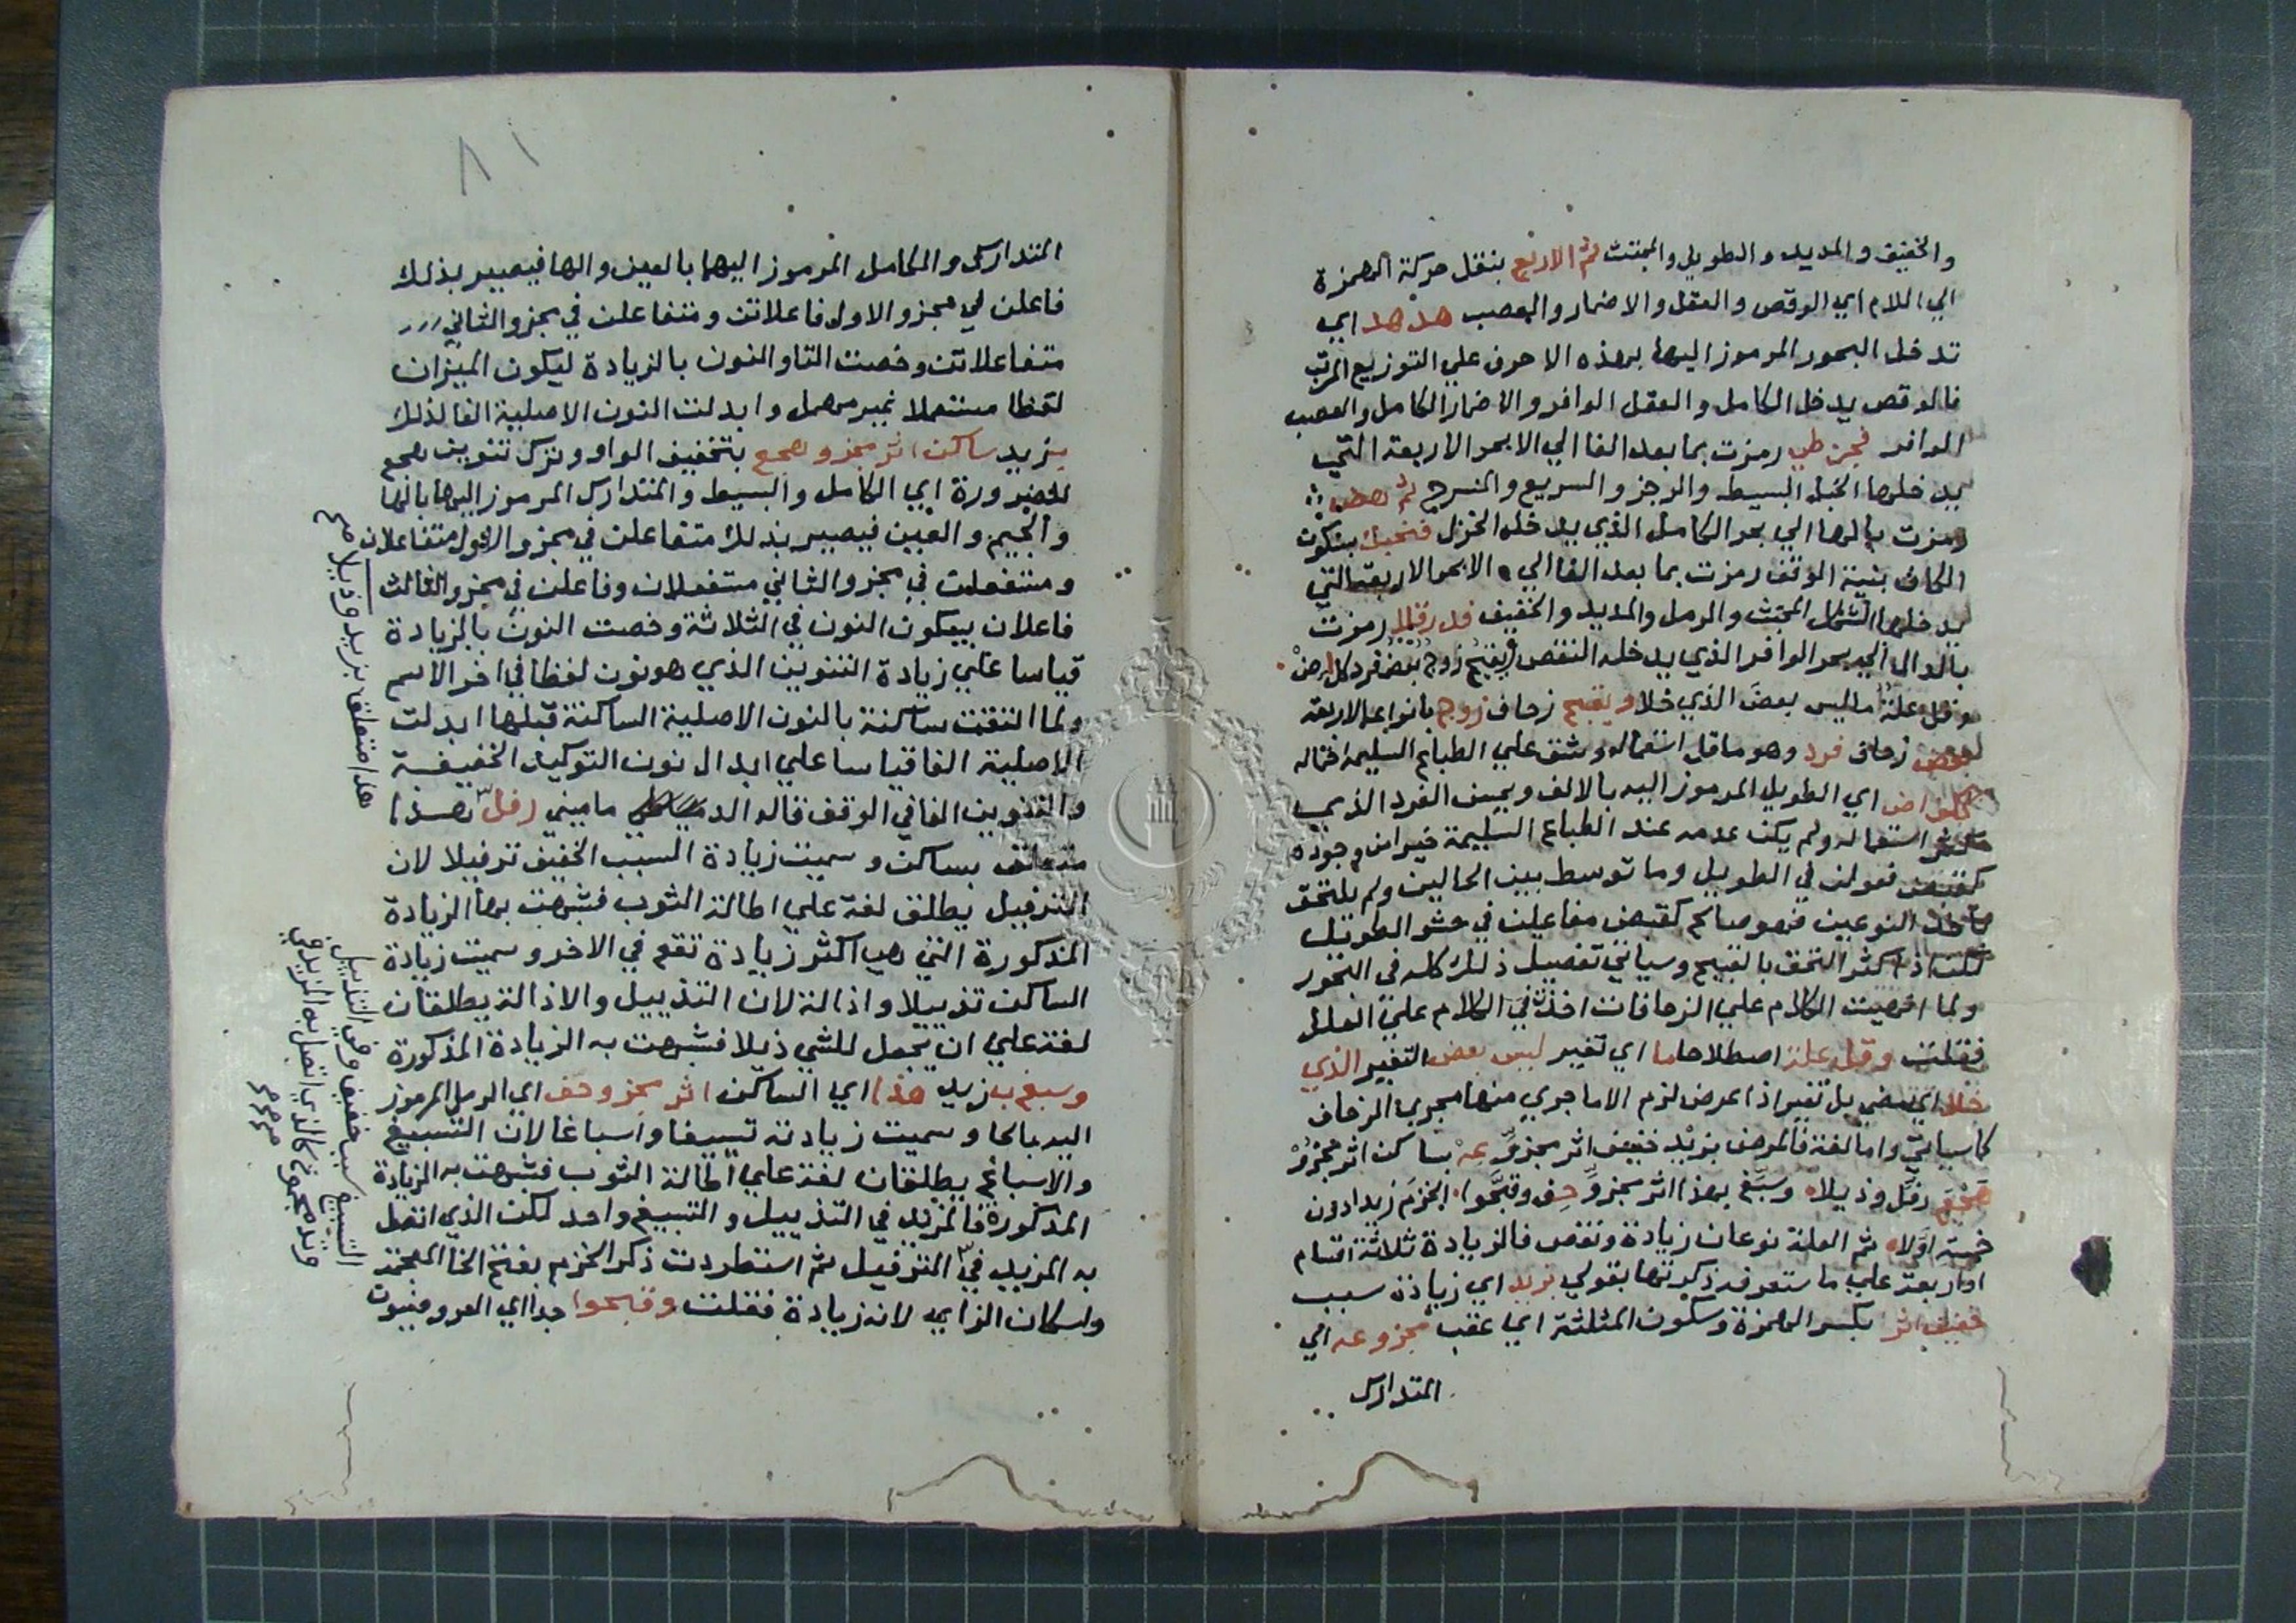 والخفيف والمديد والطويل والمجتث ثم الاربع بنقل حركة الهمزة
الي اللام اي الوقص والعقل والاضمار والعصب هد هد اي
تدخل البحور المرموز اليها بهذه الاحرف علي التوزيع المرتب
فالوقص يدخل الكامل والعقل الوافر والاضمار الكامل والعصب
الوافر فجز طي رمزت بما بعد الفا الي الابحر الاربعة التي
يدخلها الخبل البسيط والرجز والسريع والمنسرح ثم
رمزت بالها الي بحر الكامل الذي يدخله الخزل بسكون
الكاف بنية الوقف رمزت بما بعد الفا الي الابحر الاربعة التي
يدخلها الشكل المجتث والرمل والمديد والخفيف رمزت
بالدال الي بحر الوافر الذي يدخله النقص ويقبح زوج بعض فرد
وقل علة ما ليس بعض الذي خلا ويقبح زحاف زوج بانواعه الاربعة
بعض زحاف فرد وهو ما قل استعماله وشق علي الطباع السليمة احتماله
اي الطويل المرموز اليه بالالف ويحسن الفرد الذي
كثر استعماله ولم يكن عدمه عند الطباع السليمة خيرا من وجوده
كقبض فعولن في الطويل وما توسط بين الحالين ولم يلتحق
باحد النوعين فهو صالح كقبض مفاعيلن في حشو الطويل
لكن اذا كثر التحق بالقبيح وسياتي تفصيل ذلك كله في البحور
ولما انهيت الكلام علي الزحافات اخذت في الكلام علي العلل
فقلت وقل علة اصطلاحا ما اي تغير ليس بعض التغير الذي
خلا اي مضي بل تغير اذا عرض لزم الا ما جري منها مجري الزحاف
كما سياتي واما لغة فالمرض بزيد خفيف اثر مجزو عه بساكن اثر مجزو
رفل وذيلا وسبغ بهذا اثر مجزو حف وقبحوا الخزم زيدا دون
خمسة اولا ثم العلة نوعان زيادة ونقص فالزيادة ثلاثة اقسام
او اربعة علي ما ستعرفه ذكرتها بقولي بزيد اي زيادة سبب
خفيف اثر بكسر الهمزة وسكون المثلثة اي عقب مجزو عه اي
المتدارك
٨١
المتدارك والكامل المرموز اليهما بالعين والها فيصير بذلك
فاعلن في مجزو الاول فاعلاتن ومتفاعلن في مجزو الثاني
متفاعلاتن وخصت التا والنون بالزيادة ليكون الميزان
لفظا مستعملا غير مهمل وابدلت النون الاصلية الفا لذلك
بزيد ساكن اثر مجزو هجع بتخفيف الواو وترك تنوين هجع
للضرورة اي الكامل والبسيط والمتدارك المرموز اليها بالها
والجيم والعين فيصير بذلك متفاعلن في مجزو الاول متفاعلان
ومستفعلن في مجزو الثاني مستفعلان وفاعلن في مجزو الثالث
فاعلان بسكون النون في الثلاثة وخصت النون بالزيادة
قياسا علي زيادة التنوين الذي هو نون لفظا في اخر الاسم
ولما التقت ساكنة بالنون الاصلية الساكنة قبلها ابدلت
الاصلية الفا قياسا علي ابدال نون التوكيد الخفيفة
والتنوين الفا في الوقف قاله الدماميني رفل هذا
متعلق بساكن وسميت زيادة السبب الخفيف ترفيلا لان
الترفيل يطلق لغة علي اطالة الثوب فشبهت بها الزيادة
المذكورة التي هي اكثر زيادة تقع في الاخر وسميت زيادة
الساكن تذييلا واذالة لان التذييل والاذالة يطلقان
لغة علي ان يجعل للشي ذيلا فشبهت به الزيادة المذكورة
وسبغ بزيد هذا اي الساكن اثر مجزو حف اي الرمل المرموز
اليه بالحا وسميت زيادته تسبيغا واسباغا لان التسبيغ
والاسباغ يطلقان لغة علي اطالة الثوب فشبهت به الزيادة
المذكورة فالمزيد في التذييل والتسبيغ واحد لكن الذي اتصل
به المزيد في الترفيل ثم استطردت ذكر الخزم بفتح الخا المعجمة
واسكان الزاي لانه زيادة فقلت وقبحوا جدا اي العروضيون
هذا متعلق بزيد وذيلا صح
التسبيغ سبب خفيف وفي التذييل
وتد مجموع كالذي اتصل به المزيد في